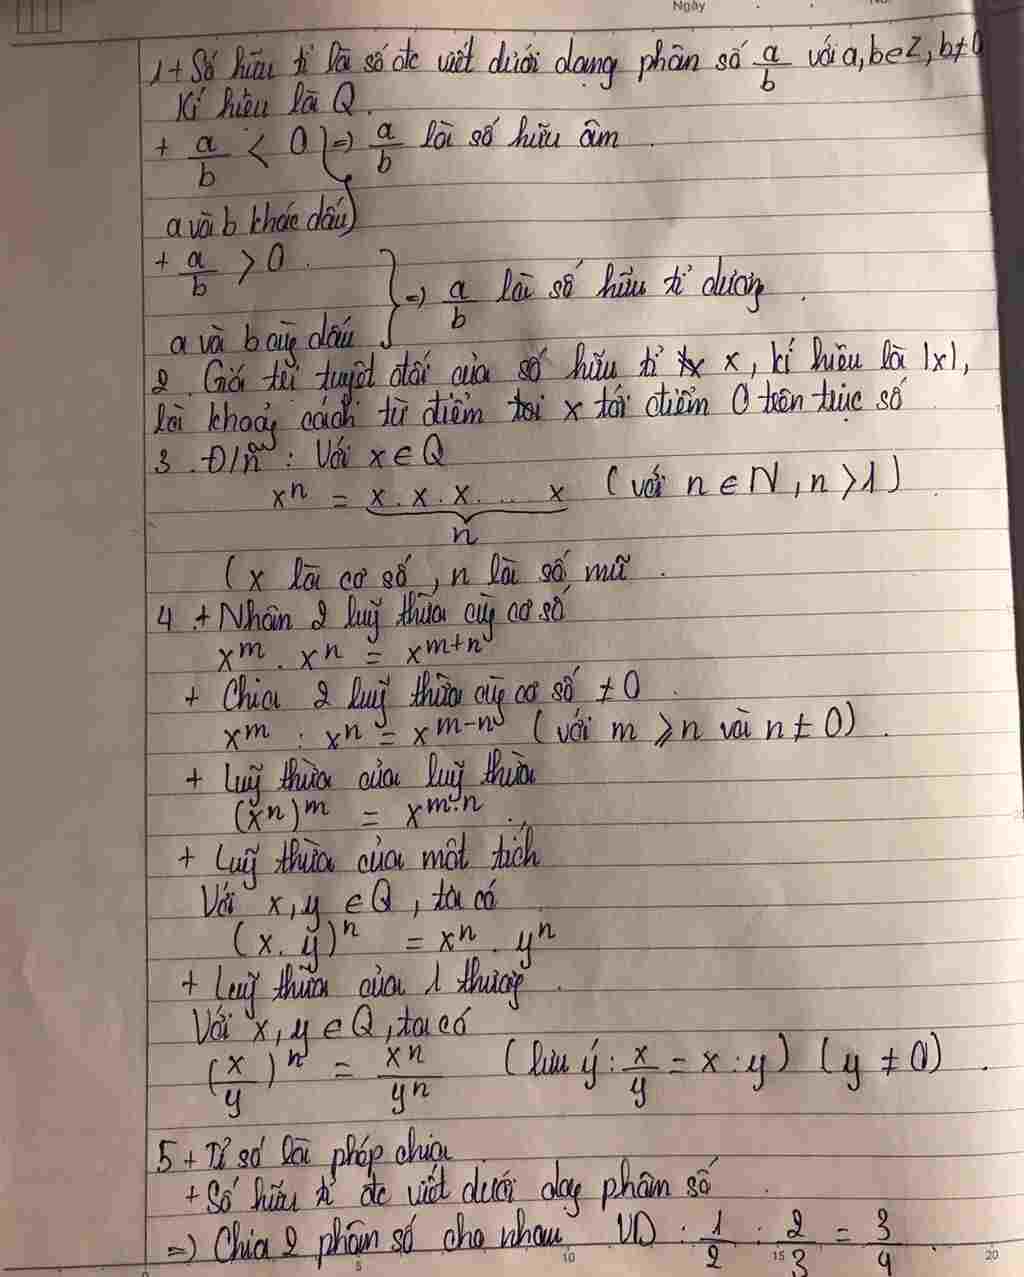 Ngày
1 + Số hữu tỉ là số đc viết dưới dạng phân số a/b với a, b ∈ Z, b ≠ 0
Kí hiệu là Q.
+ a/b < 0 } => a/b là số hữu âm
a và b khác dấu
+ a/b > 0
} => a/b là số hữu tỉ dương
a và b cùng dấu
2. Giá trị tuyệt đối của số hữu tỉ x, kí hiệu là |x|,
là khoảng cách từ điểm x tới điểm 0 trên trục số
3. Đ/n : Với x ∈ Q
xⁿ = x . x . x ... x (với n ∈ N, n > 1)
n
(x là cơ số, n là số mũ.
4. + Nhân 2 luỹ thừa cùng cơ số
xᵐ . xⁿ = xᵐ⁺ⁿ
+ Chia 2 luỹ thừa cùng cơ số ≠ 0
xᵐ : xⁿ = xᵐ⁻ⁿ (với m ⩾ n và n ≠ 0).
+ Luỹ thừa của luỹ thừa
(xⁿ)ᵐ = xᵐ·ⁿ
+ Luỹ thừa của một tích
Với x, y ∈ Q, ta có
(x. y)ⁿ = xⁿ . yⁿ
+ Luỹ thừa của 1 thương.
Với x, y ∈ Q, ta có
(x/y)ⁿ = xⁿ/yⁿ (lưu ý : x/y = x : y) (y ≠ 0).
5 + Tỉ số là phép chia
+ Số hữu tỉ đc viết dưới dạng phân số
=> Chia 2 phân số cho nhau VD : 1/2 : 2/3 = 3/4.
5 10 15 20